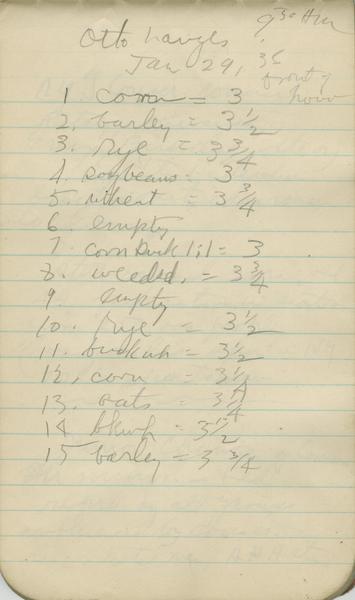 Otto Langes
9 30 AM
Jan 29, 36
front of
hour
1 corn = 3
2. barley = 3 1/2
3. rye = 3 3/4
4. soybeans = 3
5. wheat = 3 3/4
6 empty
7 corn Buck lil = 3
8. weedsd. = 3 3/4
9. empty
10. rye = 3 1/2
11. buckwh = 3 1/2
12, corn = 3 1/4
13. oats = 3 1/4
14 bkwh = 3 1/2
15 barley = 3 3/4